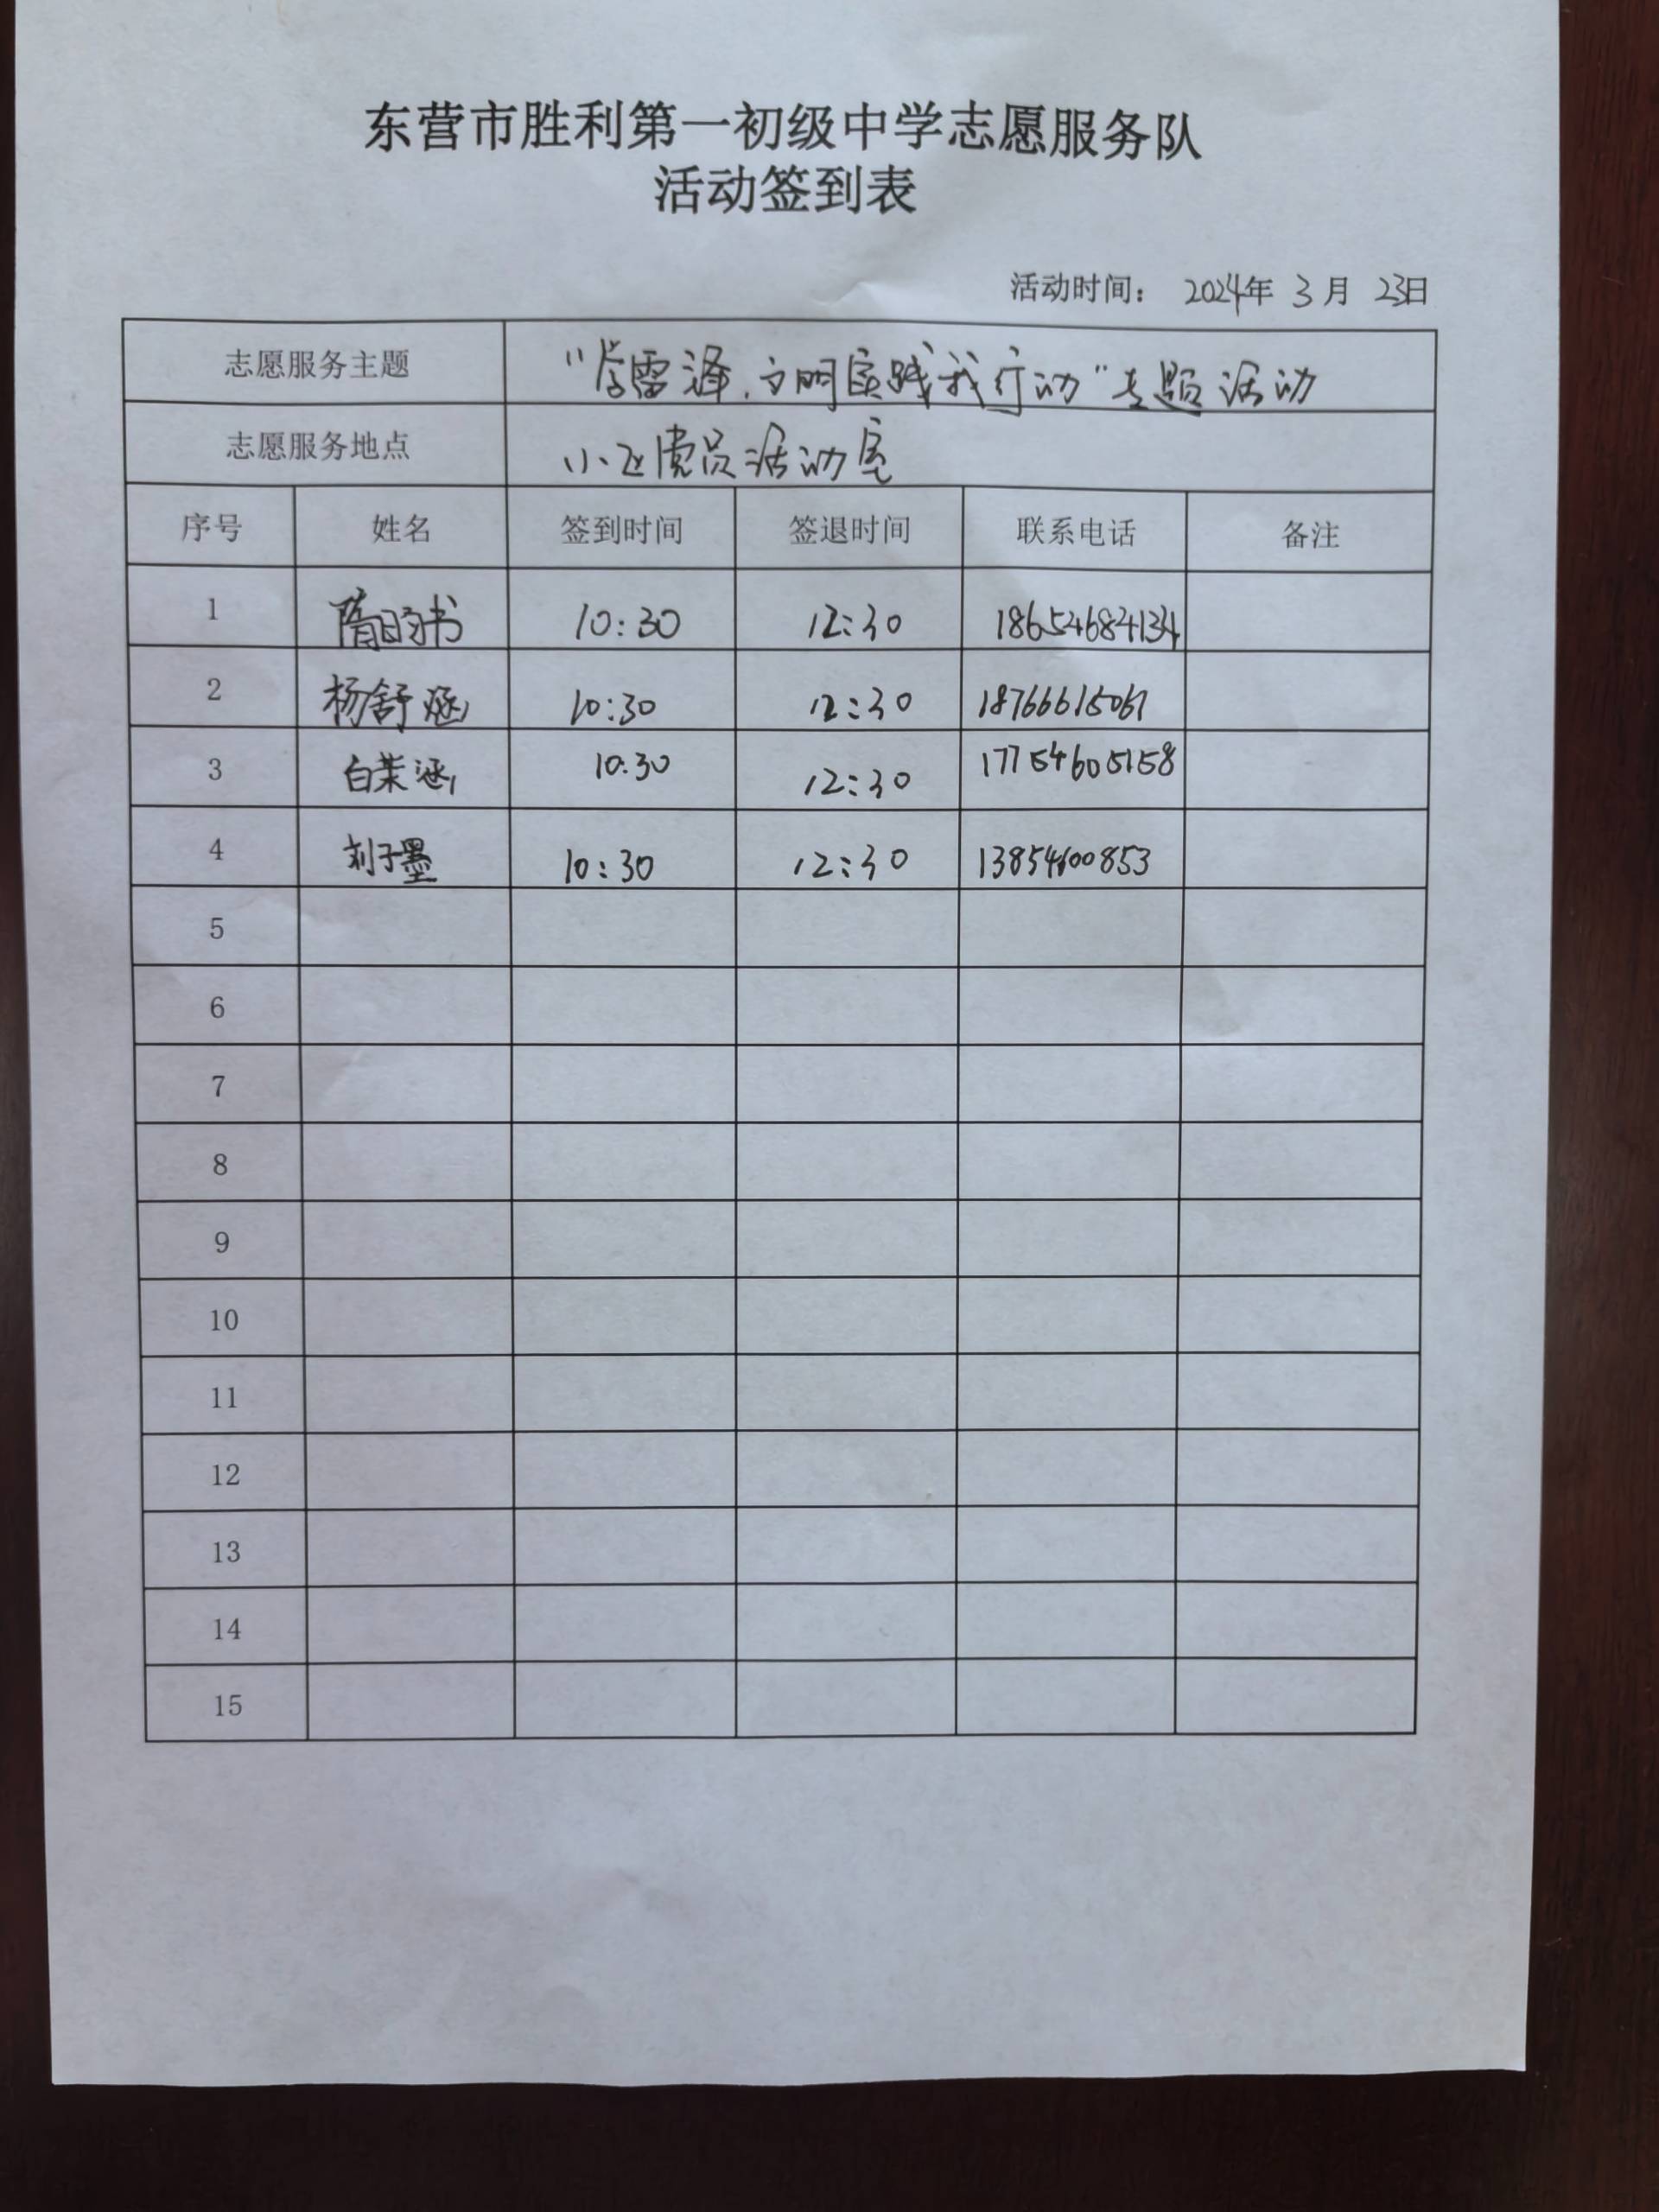 东营市胜利第一初级中学志愿服务队
活动签到表
活动时间： 2024年 3月 23日
志愿服务主题 “学雷泽，文明实践我行动”专题活动
志愿服务地点 小飞党员活动室
序号 姓名 签到时间 签退时间 联系电话 备注
1 隋 书 10:30 12:30 18654684134
2 杨舒涵 10:30 12:30 18766615061
3 白茉涵 10:30 12:30 17754605158
4 刘子墨 10:30 12:30 13854600853
5
6
7
8
9
10
11
12
13
14
15